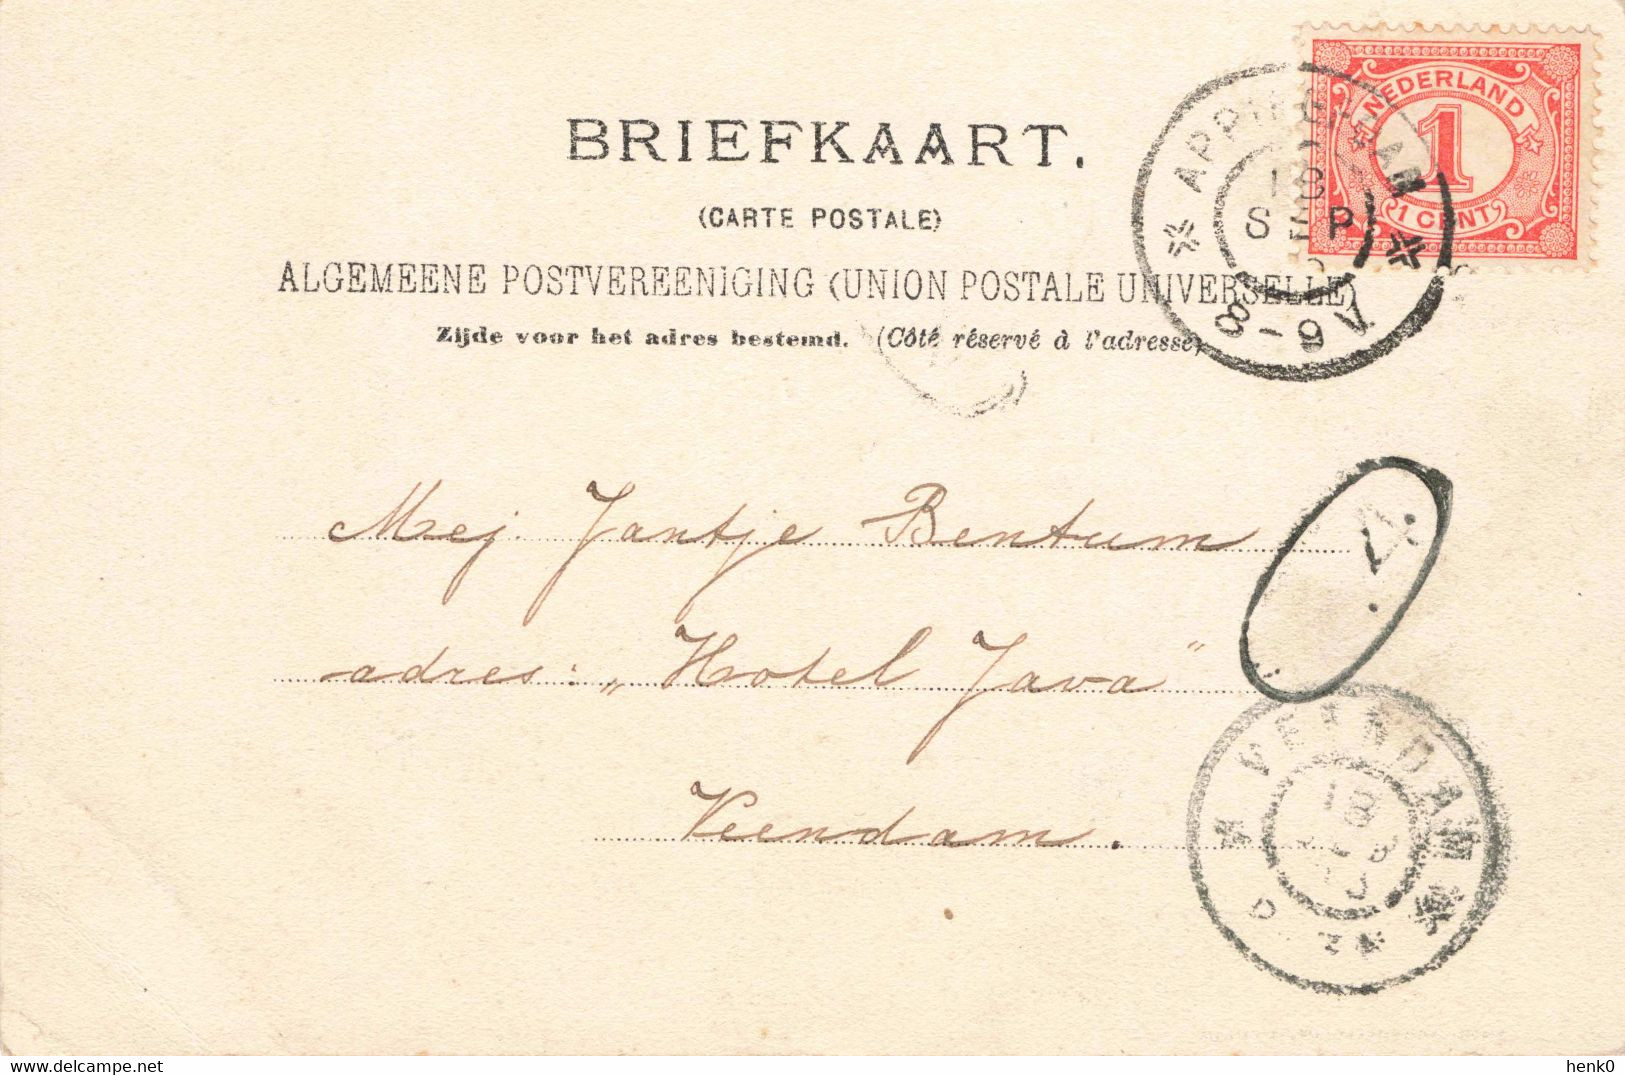 BRIEFKAART.
(CARTE POSTALE)
ALGEMEENE POSTVEREENIGING (UNION POSTALE UNIVERSELLE)
Zijde voor het adres bestemd. (Côté réservé à l'adresse)
NEDERLAND
1
1 CENT
APPINGEDAM
18
SEP
8-9 A
Mej. Jantje Bentum
adres: „Hotel Java"
Veendam.
VEENDAM
18
www.delcampe.net
henk0